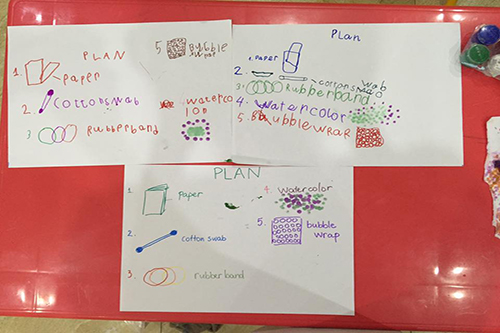 PLAN
1. paper
2. cottonswab
3. Rubberband
watercolor
5. BUBBLE
wrap
Plan
1. PAPER
2. cottonswab
3. Rubberband
4. watercolor
5. Bubblewrap
PLAN
1. Paper
2. Cotton swab
3. rubberband
4. watercolor
5. bubble
wrap